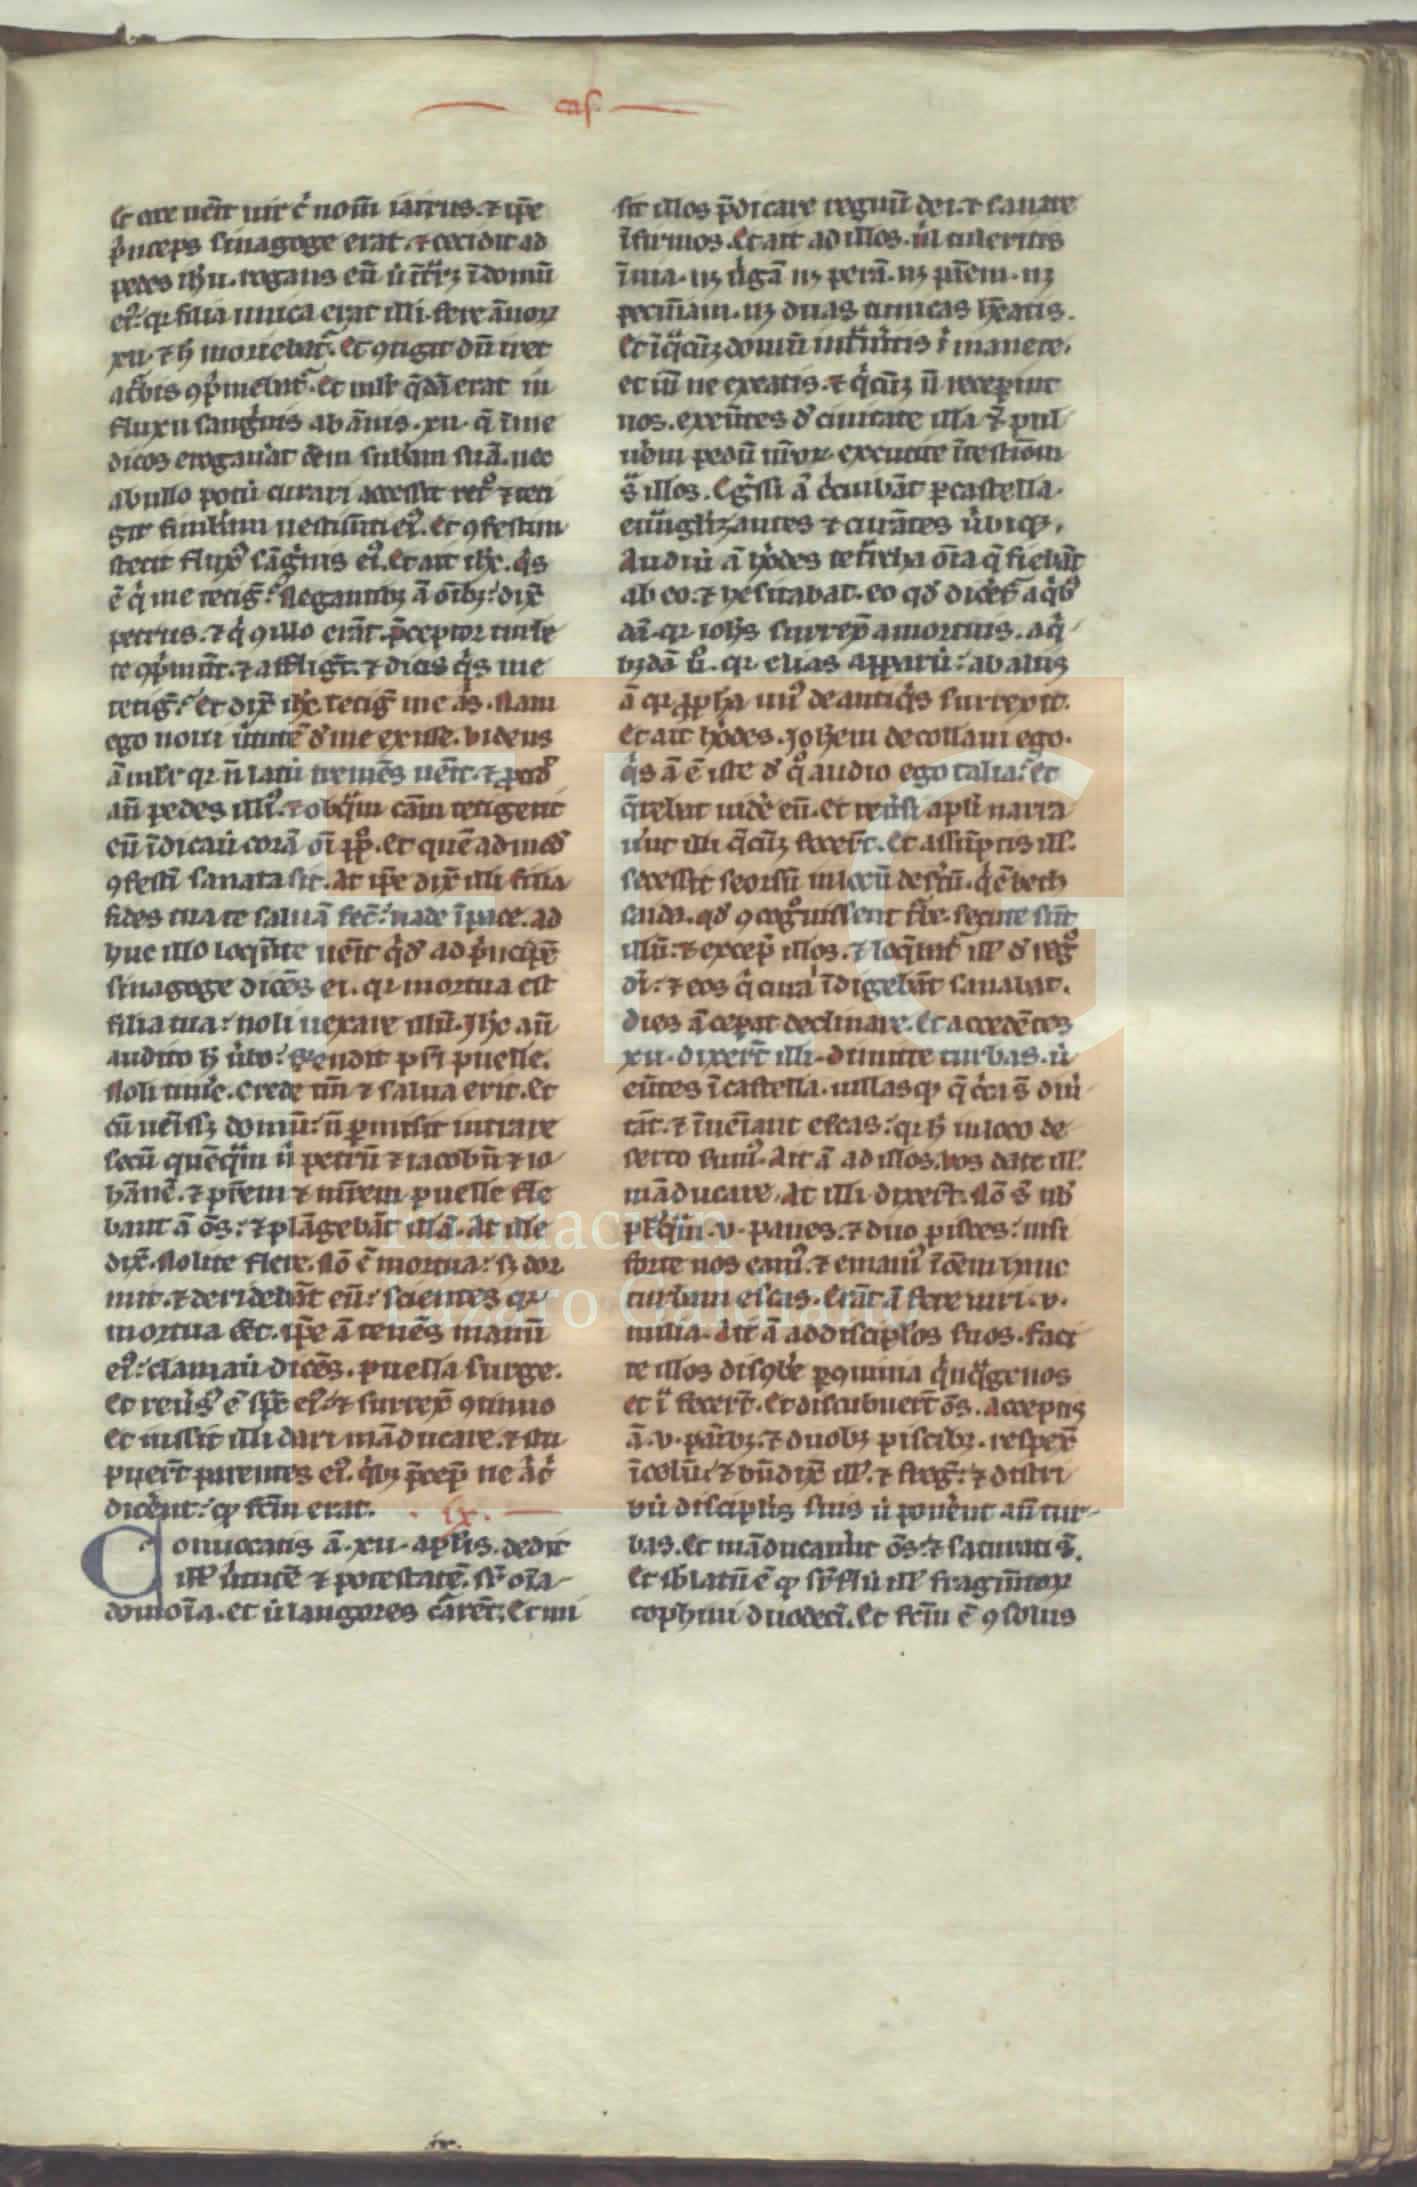 cas
Et ecce uēit uir c̓ nom̄ iairus. ⁊ ip̄e
p̓nceps sinagoge erat. ⁊ cecidit ad
pedes ih̄u. rogans eū ut īt̄ret ī domū
ei᷒. qr filia unica erat illi. fere ānorꝝ
xii. ⁊ h̓ moriebat᷑. Et ꝯtigit dū iret
a t᷑bis ꝯp̓mebat᷑. Et mulr̄ q̄dā erat in
fluxu sang̓nis ab ānis. xii. q̄ ī me
dicos erogau̓at om̄em sub̄am suā. nec
ab ullo potu̓ curari accessit ret᷒ ⁊ teti
git fimb̓am uestim̄ti ei᷒. et ꝯfestim
stetit flux᷒ sāg̓nis ei᷒. Et ait ih̄c. q̓s
ē q̓ me tetiḡ. Negantibꝫ ā oībꝫ: dix̄
petrus. ⁊ q̓ ꝯ illo erāt. p̄ceptor turbe
te ꝯp̓mūt. ⁊ affligūt. ⁊ dicis q̓s me
tetiḡ. et dix̄ ih̄c. tetiḡ me aliq̓s. Nam
ego noui u̓tutē d̓ me exisse. Videns
ā mulr̄ qr n̄ latu̓ tremēs uēit. ⁊ ꝓcid̓
an̄ pedes illi᷒. ⁊ ob quā cām tetigerit
eū īdicau̓ corā oī ppl̄o. et quēadmod̓
ꝯfestī sanata sit. At ip̄e dix̄ illi filia
fides tua te saluā fec̄. uade ī pace. ad
huc illo loq̄nte uēit q̓d̓ ad p̓ncipē
sinagoge dicēs ei. qr mortua est
filia tua: noli uexare illū. Ih̄c aū
audito h̓ u̓bo: rn̄dit pr̄i puelle.
Noli tim̓e. crede tm̄ ⁊ salua erit. Et
cū uēissꝫ domū: n̄ ꝑmisit intrare
secū quēq̄m n̓ petrū ⁊ iacobū ⁊ io
hānē. ⁊ pr̄em ⁊ mr̄em puelle fle
bant ā om̄s. ⁊ plāgebāt illā. At ille
dix̄. Nolite flere. Nō ē mortua: sꝫ dor
mit. ⁊ deridebāt eū: scientes qr
mortua eēt. ip̄e ā tenēs manū
ei᷒: clamau̓ dicēs. puella surge.
Et reu̓s᷒ ē sp̄c ei᷒ ⁊ surrex̄ ꝯtinuo
et iussit illi dari māducare. ⁊ stu
puer̄t parentes ei᷒. q̓bꝫ p̄cep̄ ne alic̓
dicerent: qd̓ fc̄m erat. · ix ·
Conuocatis ā. xii. apl̄is. dedit
ill̓ u̓tutē ⁊ potestatē. sr̄ oīa
demoīa. et u̓ langores cūrēt. Et mi
sit illos p̄dicare regnū dei. ⁊ sanare
īfirmos. Et ait ad illos. nl̓ tuleritis
ī uia. nꝫ u̓gā nꝫ perā. nꝫ pāem. nꝫ
pecūiam. nꝫ duas tunicas hēatis.
Et ī q̄cūꝫ domū intrau̓itis ī manete.
et in̄ ne exeatis. ⁊ q̓cūꝫ n̄ receperint
uos. exeūtes d̓ ciuitate illa ⁊ pul
uerem pedū ur̄orꝝ excutite ī testiōm
s̄ illos. Egssi ā c̓cuibāt ꝑ castella.
euāglizantes ⁊ curātes u̓biqꝫ.
Audiu̓ ā h̓odes tetrarcha oīa q̄ fiebāt
ab eo. ⁊ hesitabat. eo qd̓ dicēr̄ a q̓b᷒
dā. qr ioh̄s surrex̄ a mortuis. a q̓
bꝫdā u̓o. qr elias apparu̓: ab aliis
ā qr ꝓph̄a un᷒ de antiq̓s surrexit.
Et ait h̓odes. Joh̄em decollaui ego.
q̓s ā ē iste d̓ q̓ audio ego talia. et
q̄rebat uid̓e eū. Et reu̓si apl̄i narra
u̓unt illi q̄cūꝫ fecer̄t. Et assūptis ill̓
secessit seorsū in locū des̓tū. q̓ ē beth
saida. qd̓ ꝯ cognouissent t᷑be. secute sūt
illū. ⁊ excep̓ illos. ⁊ loq̄bat᷑ ill̓ d̓ regn̓
dī. ⁊ eos q̓ cura īdigebāt sanabat.
Dies ā cep̓at declinare. Et accedētes
xii. dixer̄t illi. dimitte turbas. u̓
eūtes ī castella. uillasqꝫ q̄ c̓ca s̄ diu̓
tāt. ⁊ īueniant escas: qr h̓ in loco de
serto sum᷒. Ait ā ad illos. vos date ill̓
māducare. At illi dixer̄t. Nō s̄ nob̓
pl᷒q̄m. v. panes. ⁊ duo pisces: nisi
forte nos eam᷒. ⁊ emam᷒ ī oēm hanc
turbam escas. Erāt ā fere uiri. v.
milia. Ait ā ad discipl̓os suos. Faci
te illos discūb̓e ꝑ ꝯuiuia q̓nq̄genos
et ita fecer̄t. Et discubuer̄t om̄s. Acceptis
ā. v. pāibꝫ. ⁊ duobꝫ piscibꝫ. respex̄
ī celū. ⁊ bn̄dix̄ ill̓. ⁊ freḡ. ⁊ distri
bu̓ discipl̓is suis u̓ ponerent an̄ tur
bas. Et māducauer̄t om̄s. ⁊ saturati s̄.
Et sublatū ē qd̓ sr̄fu̓ ill̓ fragm̄torꝝ
cophini duodecī. Et fc̄m ē ꝯ solus
Fundación
Lázaro Galdiano